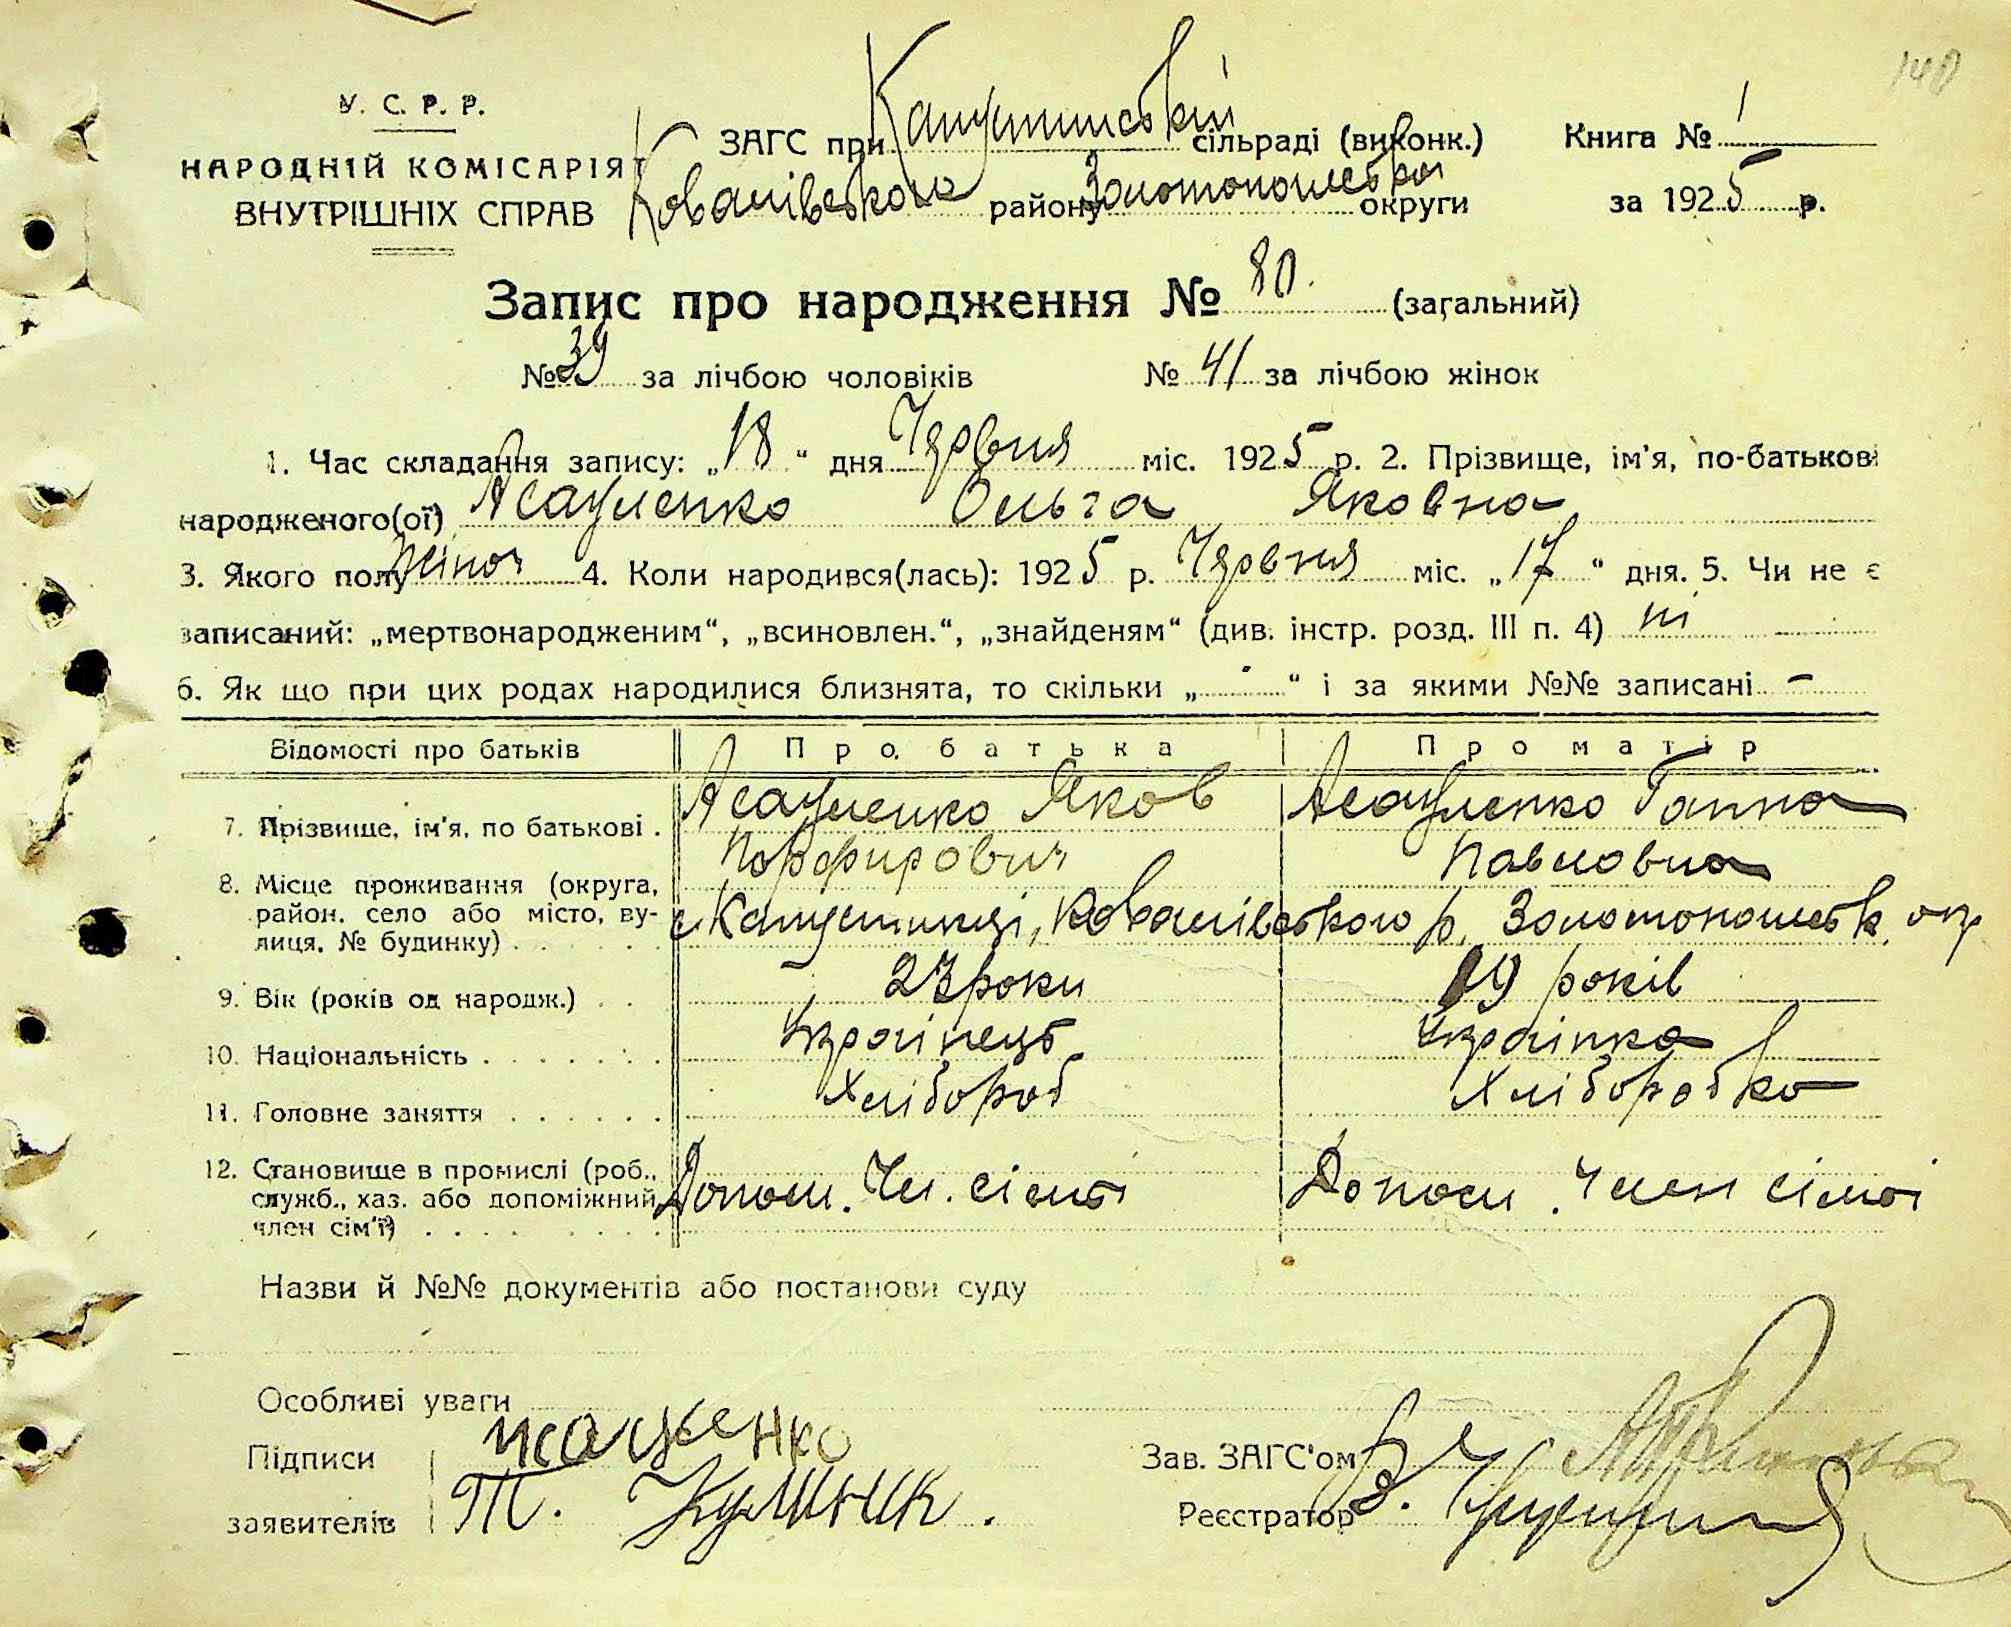 140
У. С. Р. Р.
НАРОДНІЙ КОМІСАРІЯТ
ВНУТРІШНІХ СПРАВ
ЗАГС при Капустинській сільраді (виконк.)
Ковалівського району Золотоношської округи
Книга № 1
за 1925 р.
Запис про народження № 80. (загальний)
№ 39 за лічбою чоловіків № 41 за лічбою жінок
1. Час складання запису: „18“ дня Червня міс. 1925 р. 2. Прізвище, ім'я, по-батькові
народженого(ої) Асауленко Ольга Яковна
3. Якого полу жіноч 4. Коли народився(лась): 1925 р. Червня міс. „17“ дня. 5. Чи не є
записаний: „мертвонародженим“, „всиновлен.“, „знайденям“ (див. інстр. розд. III п. 4) ні
6. Як що при цих родах народилися близнята, то скільки „-“ і за якими №№ записані -
Відомості про батьків Про батька Про матір
7. Прізвище, ім'я, по батькові . Асауленко Яков Порфирович Асауленко Ганна Павловна
8. Місце проживання (округа,
район, село або місто, ву-
лиця, № будинку) . с Капустинці, Ковалівського р. Золотоношськ. окр
9. Вік (років од народж.) . . 23 роки 19 років
10. Національність . . . . . . Українець Українка
11. Головне заняття . . . . . . Хлібороб Хліборобка
12. Становище в промислі (роб.,
служб., хаз. або допоміжний
член сім'ї) . . . . Допом. Чл. сімї Допом. член сімї
Назви й №№ документів або постанови суду
Особливі уваги
Підписи
заявителів Т. Кулиник.
Зав. ЗАГС'ом
Реєстратор